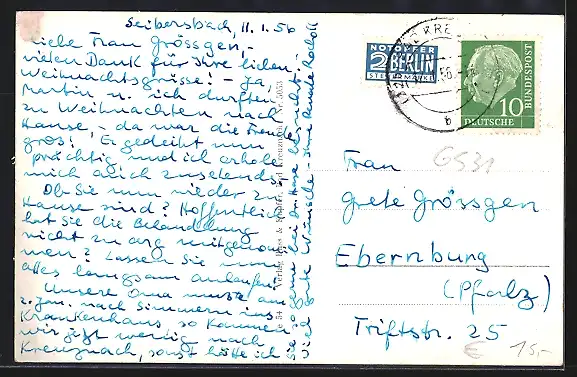 Seibersbach, 11.1.56
Liebe Frau Grössgen,-
vielen Dank für Ihre lieben
Weihnachtsgrüsse! - Ja,
Martin u. ich durften
zu Weihnachten nach
Hause, - da war die Freude
gros! Er gedeiht nun
prächtig und ich erhole
mich auch zusehends.
Ob Sie nun wieder zu
Hause sind? Hoffentlich
hat Sie die Behandlung
nicht zu arg mitgenom
men? Lassen Sie nun
alles langsam anlaufen.
Unsere Oma musste am
2. Jan. nach Simmern ins
Krankenhaus so kommen
wir jetzt wenig nach
Kreuznach, sonst hätte ich
Sie gerne bei
Viel gute Wünsche - Ihre
NOTOPFER
2 BERLIN
STEUERMARKE
b
10
DEUTSCHE
BUNDESPOST
G531
Frau
Grete Grössgen
Ebernburg
(Pfalz)
Triftstr. 25
€ 15,-